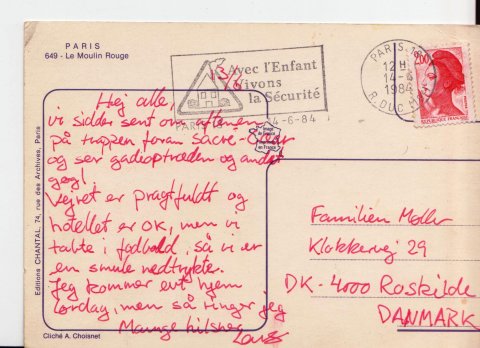 PARIS
649 - Le Moulin Rouge
Avec l'Enfant
Vivons
la Sécurité
PARIS
14-6-84
PARIS
12 H
14-6
1984
2,00
REPUBLIQUE FRANÇAISE
13/6
Hej alle,
vi sidder sent om aftenen
på trappen foran Sacré-Cœur
og ser gadeoptræden og andet
gøgl.
Vejret er pragtfuldt og
hotellet er OK, men vi
tabte i fodbold, så vi er
en smule nedtrykte.
Jeg kommer evt hjem
lørdag, men så ringer jeg
Mange hilsner
Editions CHANTAL, 74, rue des Archives, Paris
Cliché A. Choisnet
Familien Møller
Klokkervej 29
DK-4000 Roskilde
DANMARK